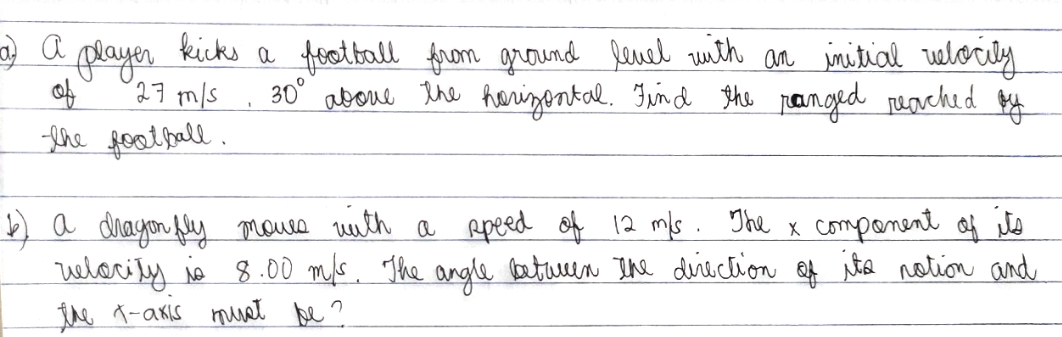 a) A player kicks a football from ground level with an initial velocity
of 27 m/s, 30° above the horizontal. Find the ranged reached by
the football.
b) A dragonfly moves with a speed of 12 m/s. The x component of its
velocity is 8.00 m/s. The angle between the direction of its motion and
the x-axis must be?